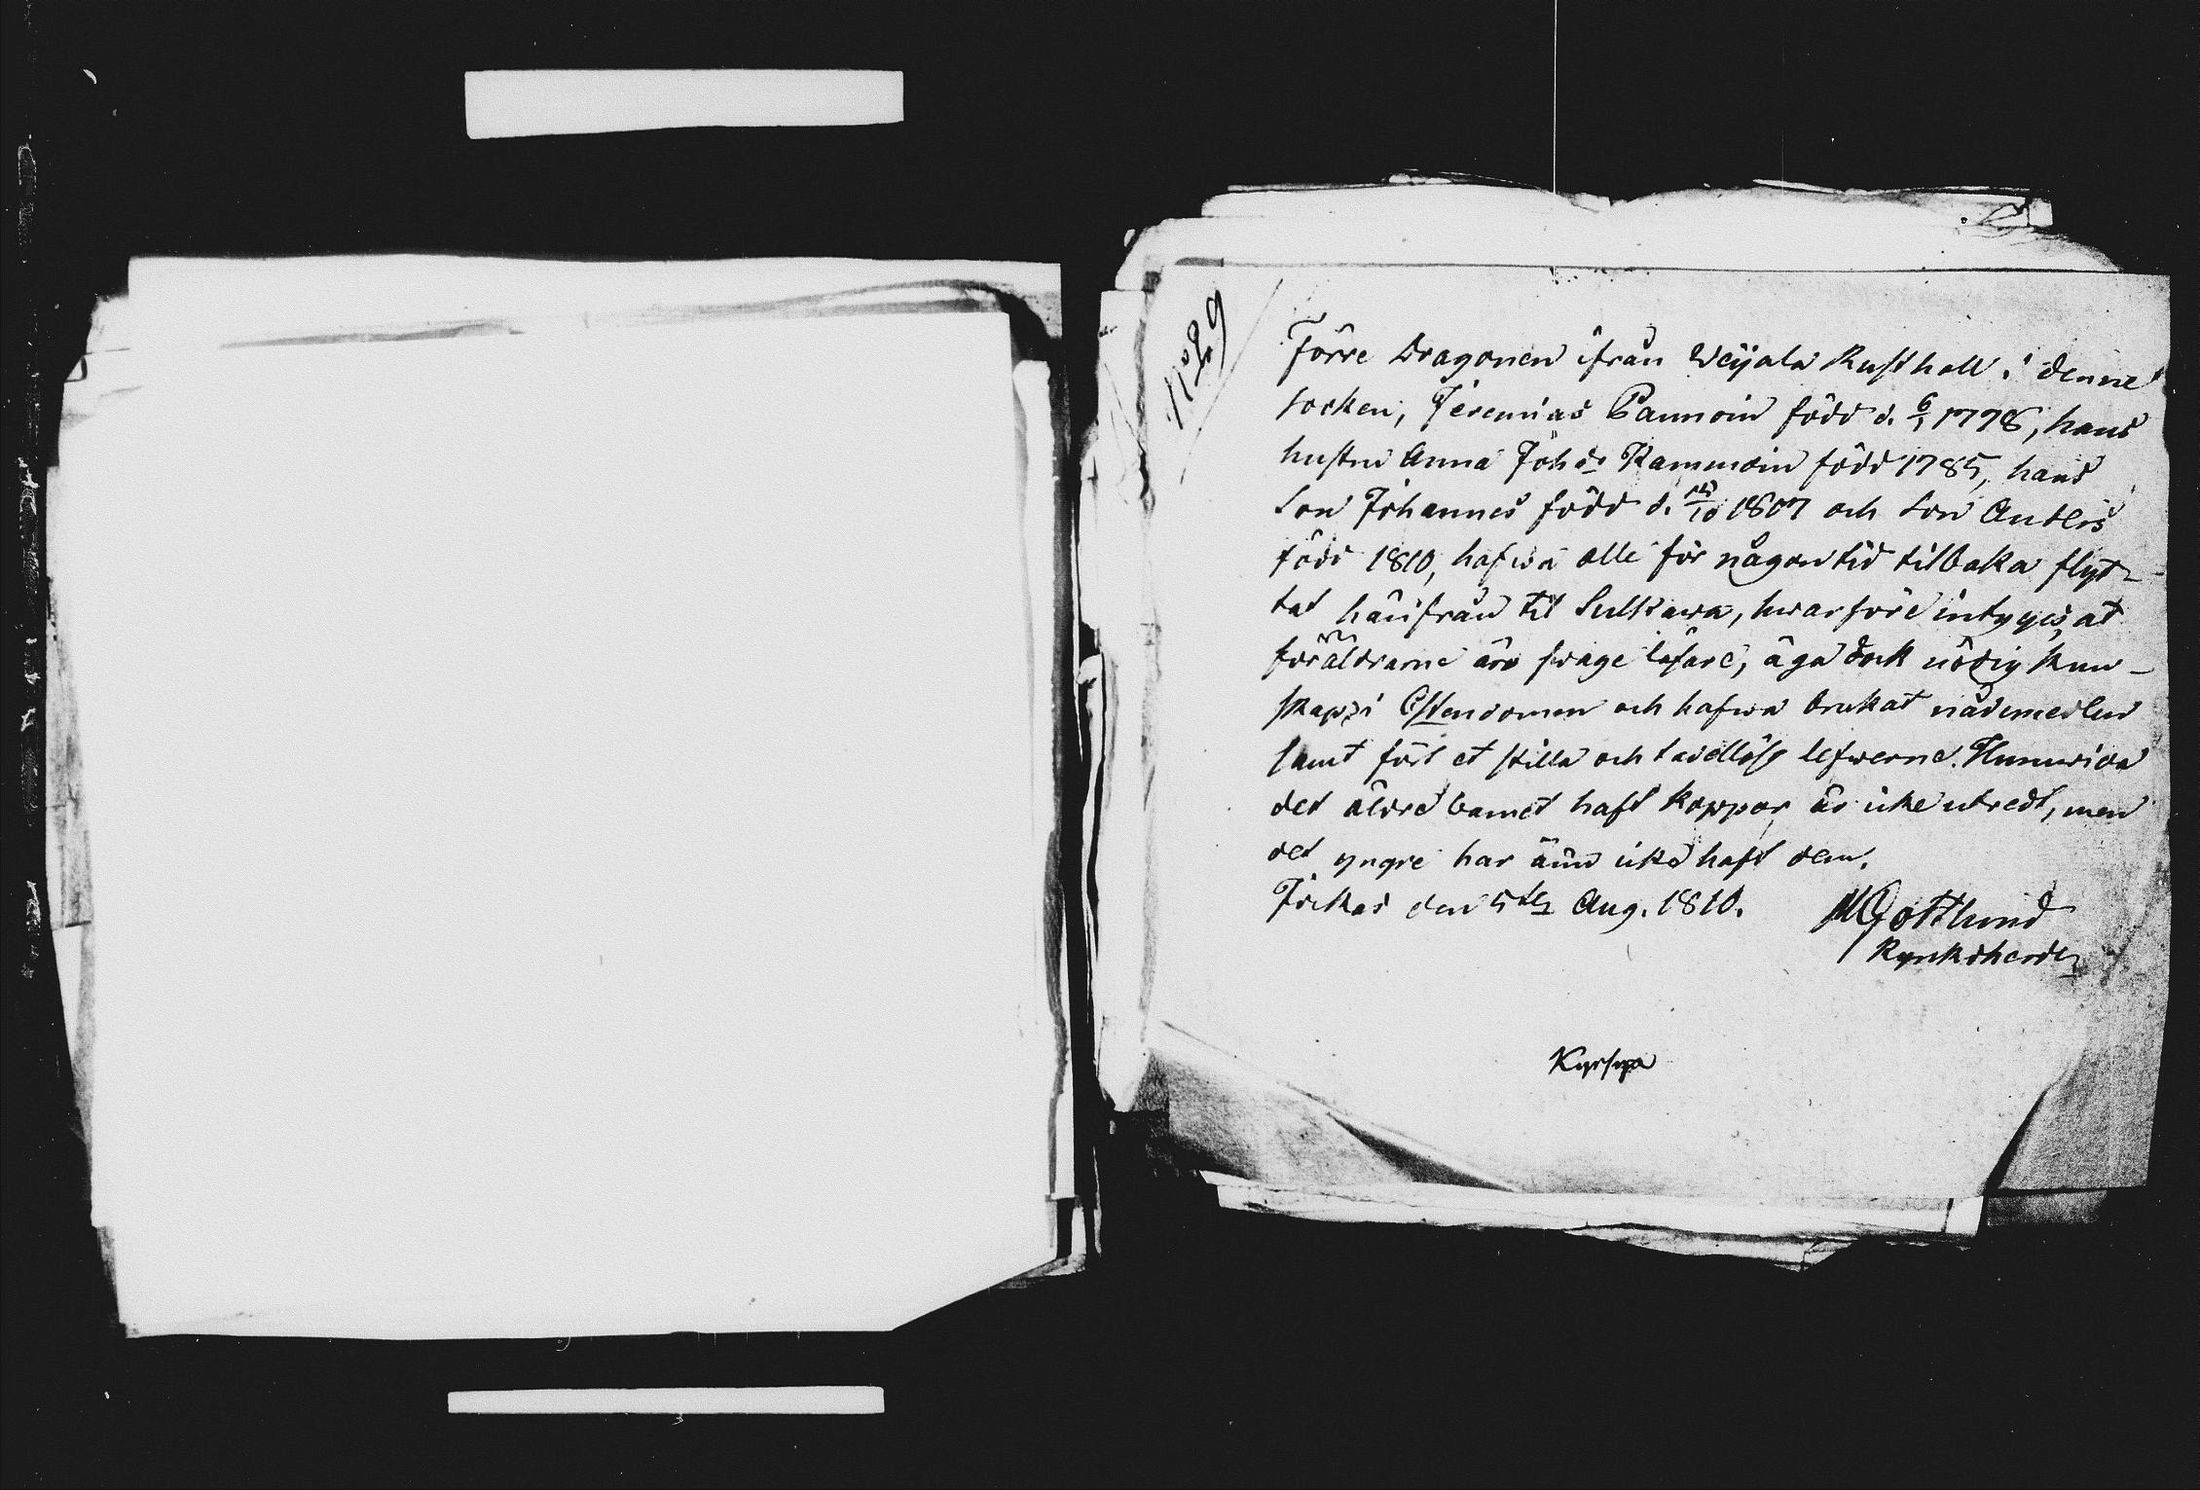 N:o 89
Förre Dragonen ifrån Weijala Rusthåll i denne
Socken, Jeremias Pannoin född d. 6/1 1778, hans
hustru Anna Johsdr Kammoin född 1785, hans
Son Johannes född d. 14/10 1807 och Son Anders
född 1810, hafwa alle för någon tid tilbaka flyt-
tat härifrån til Sulkawa, hwarföre intygas, at
föräldrarne äro swage läsare, äga dock nödig kun-
skap i Xstendomen och hafwa brukat nådemedlen
samt fört et stilla och tadellöst lefwerne. Hunuvida
det äldre barnet haft koppor är icke utredt, men
det yngre har ännu icke haft dem.
Jockas den 5te Aug. 1810.
M Gottlund
Kyrkoherde
Kyrsyä